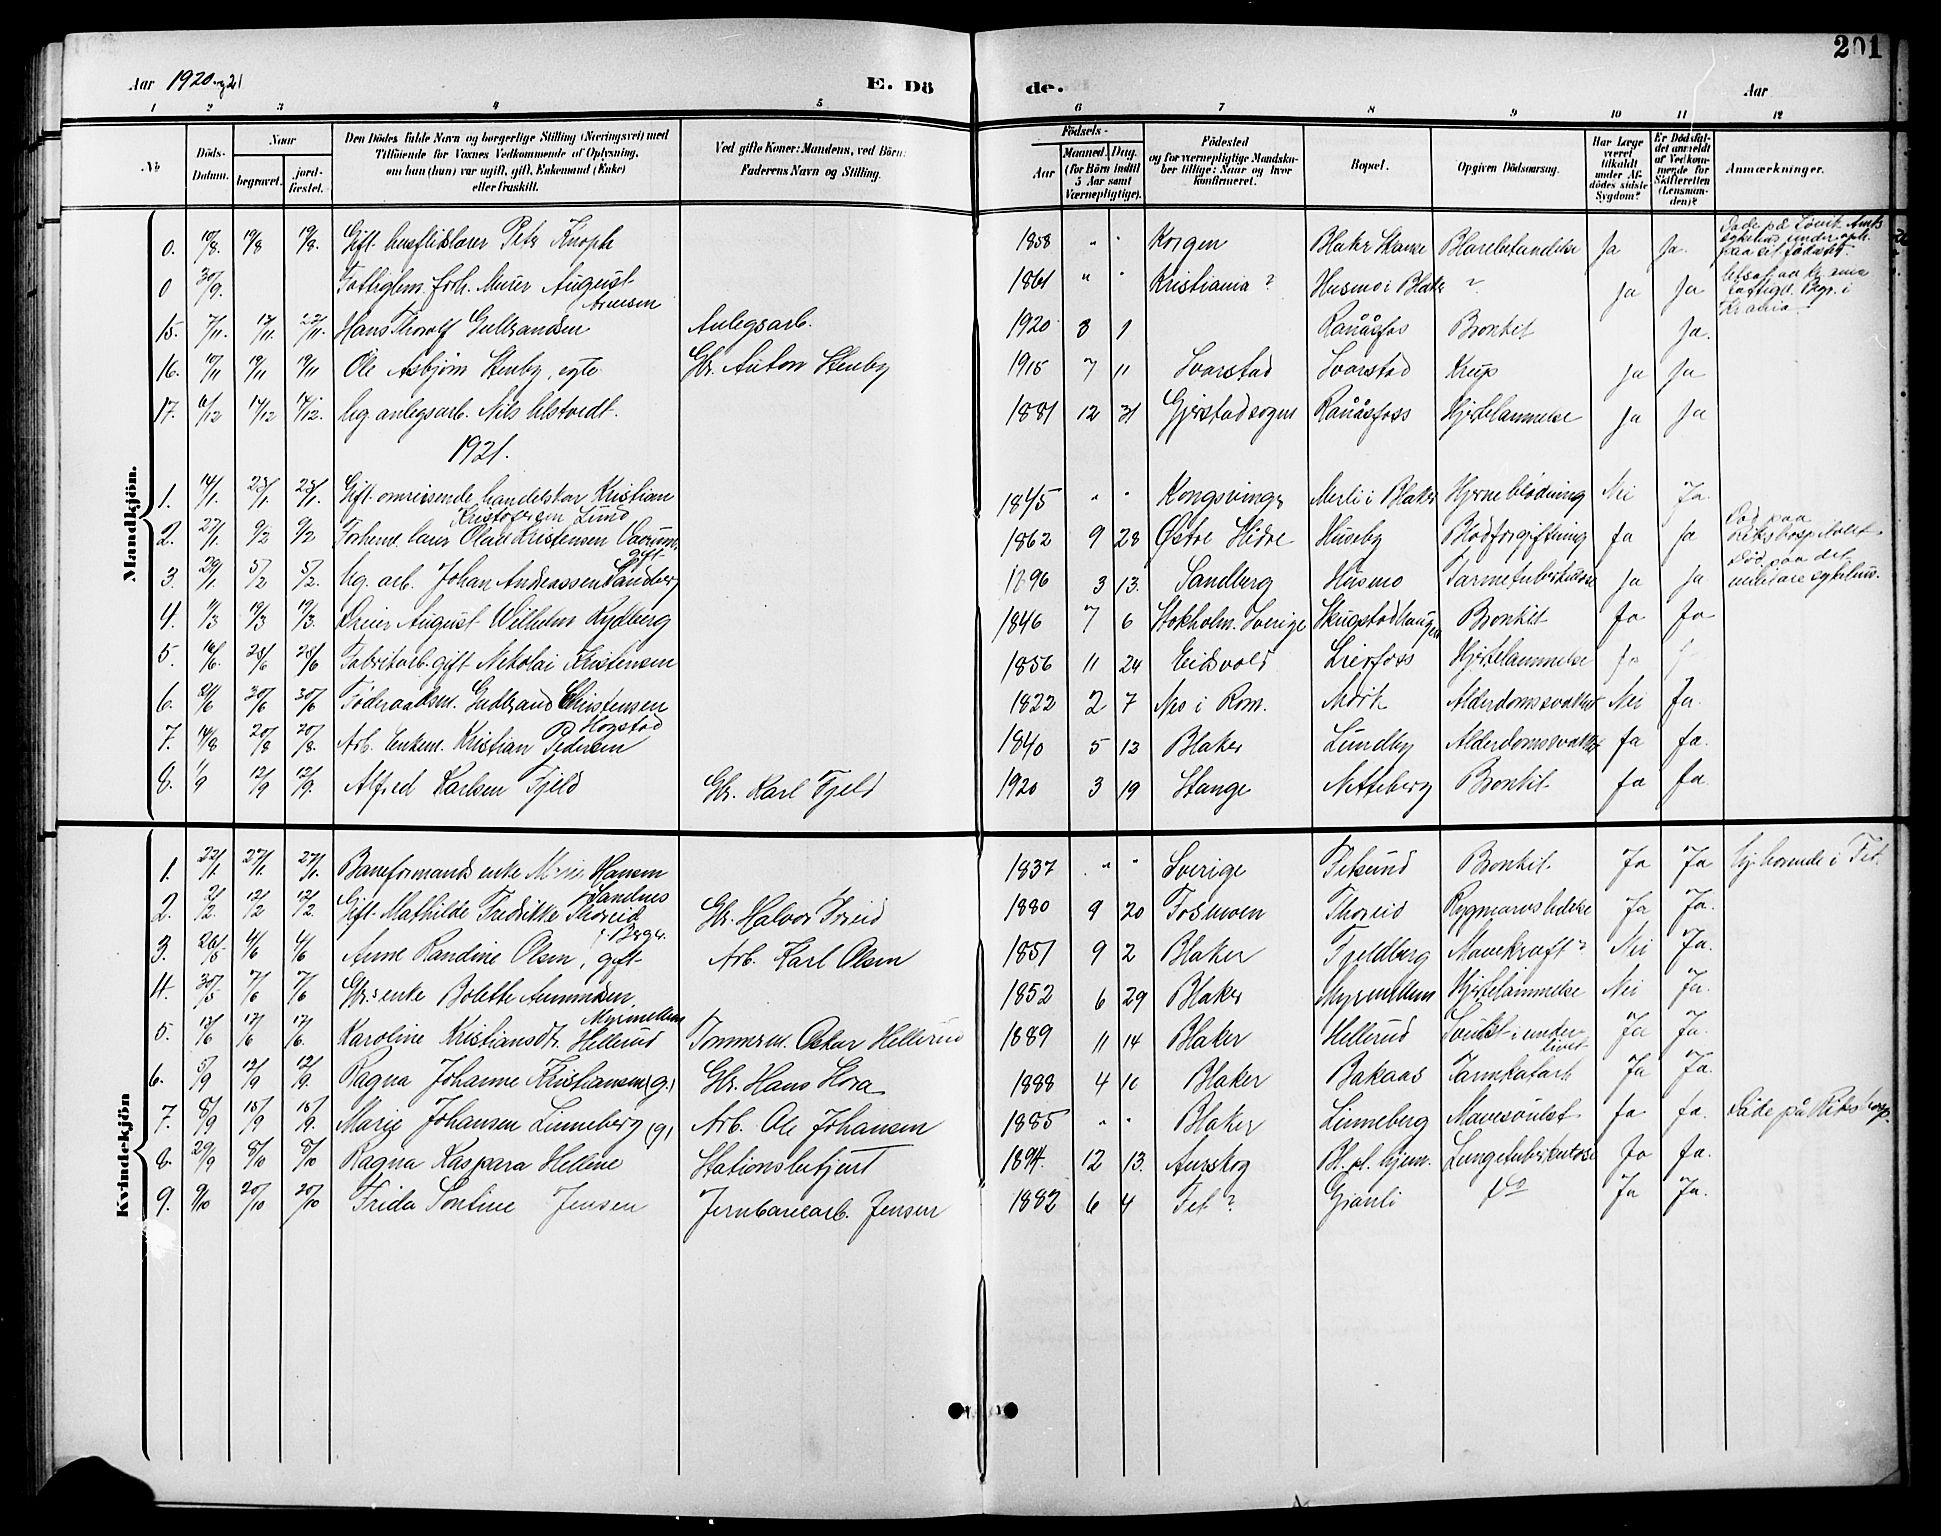 201
Aar 1920 og 21 E. Dö de. Aar
1 2 3 4 5 6 7 8 9 10 11 12
No Döds-Datum. Naar begravet. jord-fæstet. Den Dödes fulde Navn og borgerlige Stilling (Næringsvei) med Tilföiende for Voxnes Vedkommende af Oplysning, om han (hun) var ugift, gift, Enkemand (Enke) eller fraskilt. Ved gifte Koner: Mandens, ved Börn: Faderens Navn og Stilling. Födsels- Aar Maaned. Dag. (for Börn indtil 5 Aar samt Værnepligtige). Födested og for værnepligtige Mandskaber tillige: Naar og hvor konfirmeret. Bopæl. Opgiven Dödsaarsag. Har Læge været tilkaldt under Afdödes sidste Sygdom? Er Dödsfaldet anmeldt af Vedkommende for Skifteretten (Lensmanden)? Anmærkninger.
Mandkjön.
0. 10/8. 19/8 19/8. Gift husflidslærer Petr Knoph 1858 " " Korgen Blaker Skanse Ja Ja.
0 30/9. Fattiglem. forh. Murer August Arnesen 1861 " " Kristiania ? Husmo i Blaker ? Ja Ja
15. 7/11. Hans Thorolf Gulbrandsen Anlegsarb. 1920 3 1 Rånåsfos Bronkit Ja.
16. 10/11 19/11 19/11 Ole Asbjørn Stenby, egte Gbr. Anton Stenby 7 11 Svarstad Svarstad Krup Ja Ja
17. 6/12 14/12 14/12. Ug. anlegsarb. Nils Ulstvedt. 1881 12 31 Gjerstad sogn Rånåsfoss Hjertelammelse Ja Ja
1921.
1. 14/1. 25/1 25/1. Gift. omreisende handelskar Kristian Kristofersen Lund 1845 " " Kongsvinger Merli i Blaker Hjerneblødning Nei Ja.
2. 27/1. 9/2 9/2 Forhenv. lærer Olaus Kristensen gift 1862 9 28 Østre Slidre Huseby Blodforgiftning Ja Ja Død paa Rikshospitalet
3. 29/1 5/2 5/2. Ug. arb. Johan Andreassen Sandberg 1896 3 13. Sandberg Husmo Tarmetuberkulose Ja Ja Død paa det militære sykehus.
4. 11/3 19/3 19/3. Dreier August Wilhelm Rydberg 1846 7 6 Stokholm. Sverige Skugstadhaugen Bronkit Ja Ja
5. 16/6. 25/6 25/6 Fabrikarb. gift Nikolai Kristensen 1856 11 24 Eidsvold Lierfoss Hjertelammelse Ja
6. 21/6 30/6 30/6 Føderaadsm. Gudbrand Christensen 1822 2 7 Nes i Rom. Mørk Alderdomssvakhet Nei Ja.
7. 14/8 20/8 20/8. Arb. Enkem. Kristian Pedersen Hogstad 1840 5 13 Blaker Lundby Alderdomssvakhet Ja Ja.
8. 1/9 12/9 12/9. Alfred Karlsen Fjeld Gbr. Karl Fjeld 1920 3 19 Stange Nitteberg Bronkit Ja Ja.
Kvindekjön
1. 22/1. 27/1. 27/1. Baneformands enke Hansen 1837 " " Sverige Fetsund Bronkit Ja Ja Hjhørende i Fet.
2. 2/2. 12/2 12/2. Gift. Mathilde Fredrikke Thoreid f. Sandnes Gbr. Halvor Toreid 1880 9 20 Fosmoen Thoreid Rygmarvslidelse Ja Ja.
3. 26/5 4/6 4/6 Anne Randine Olsen, gift f. Berger. Arb. Karl Olsen 1851 9 2 Blaker Fjeldberg Mavekræft? Nei Ja.
4. 30/5 7/6 7/6 Gbr. enke Bolette Amundsen Myrmellem 1852 6 29 Blaker Myrmellem Hjertelammelse Nei Ja.
5. 12/6 17/6 17/6. Karoline Kristiansdtr. Hellerud Tømmerm. Oskar Hellerud 1889 11 14 Blaker Hellerud Svulst i underlivet Ja Ja.
6. 5/9 12/9 12/9. Ragna Johanne Kristiansen (g.) Gbr. Hans Hora 1888 4 10 Blaker Bakaas Tarmkatarh Ja Ja.
7. 8/9 15/9 15/9. Marie Johansen Linneberg (g) Arb. Ole Johansen 1885 " " Blaker Linneberg Mavesvulst Ja Ja. Døde på Rikshosp.
8. 29/9 8/10 8/10 Ragna Kaspara Helline Stationsbetjent 1894. 12 13. Aurskog Bl. pl. hjem. Lungetuberkulose Ja Ja.
9. 9/10 20/10 20/10 Frida Sontine Jensen Jernbanearb. Jensen 1882 6 4 Fet ? Granli do Ja Ja.